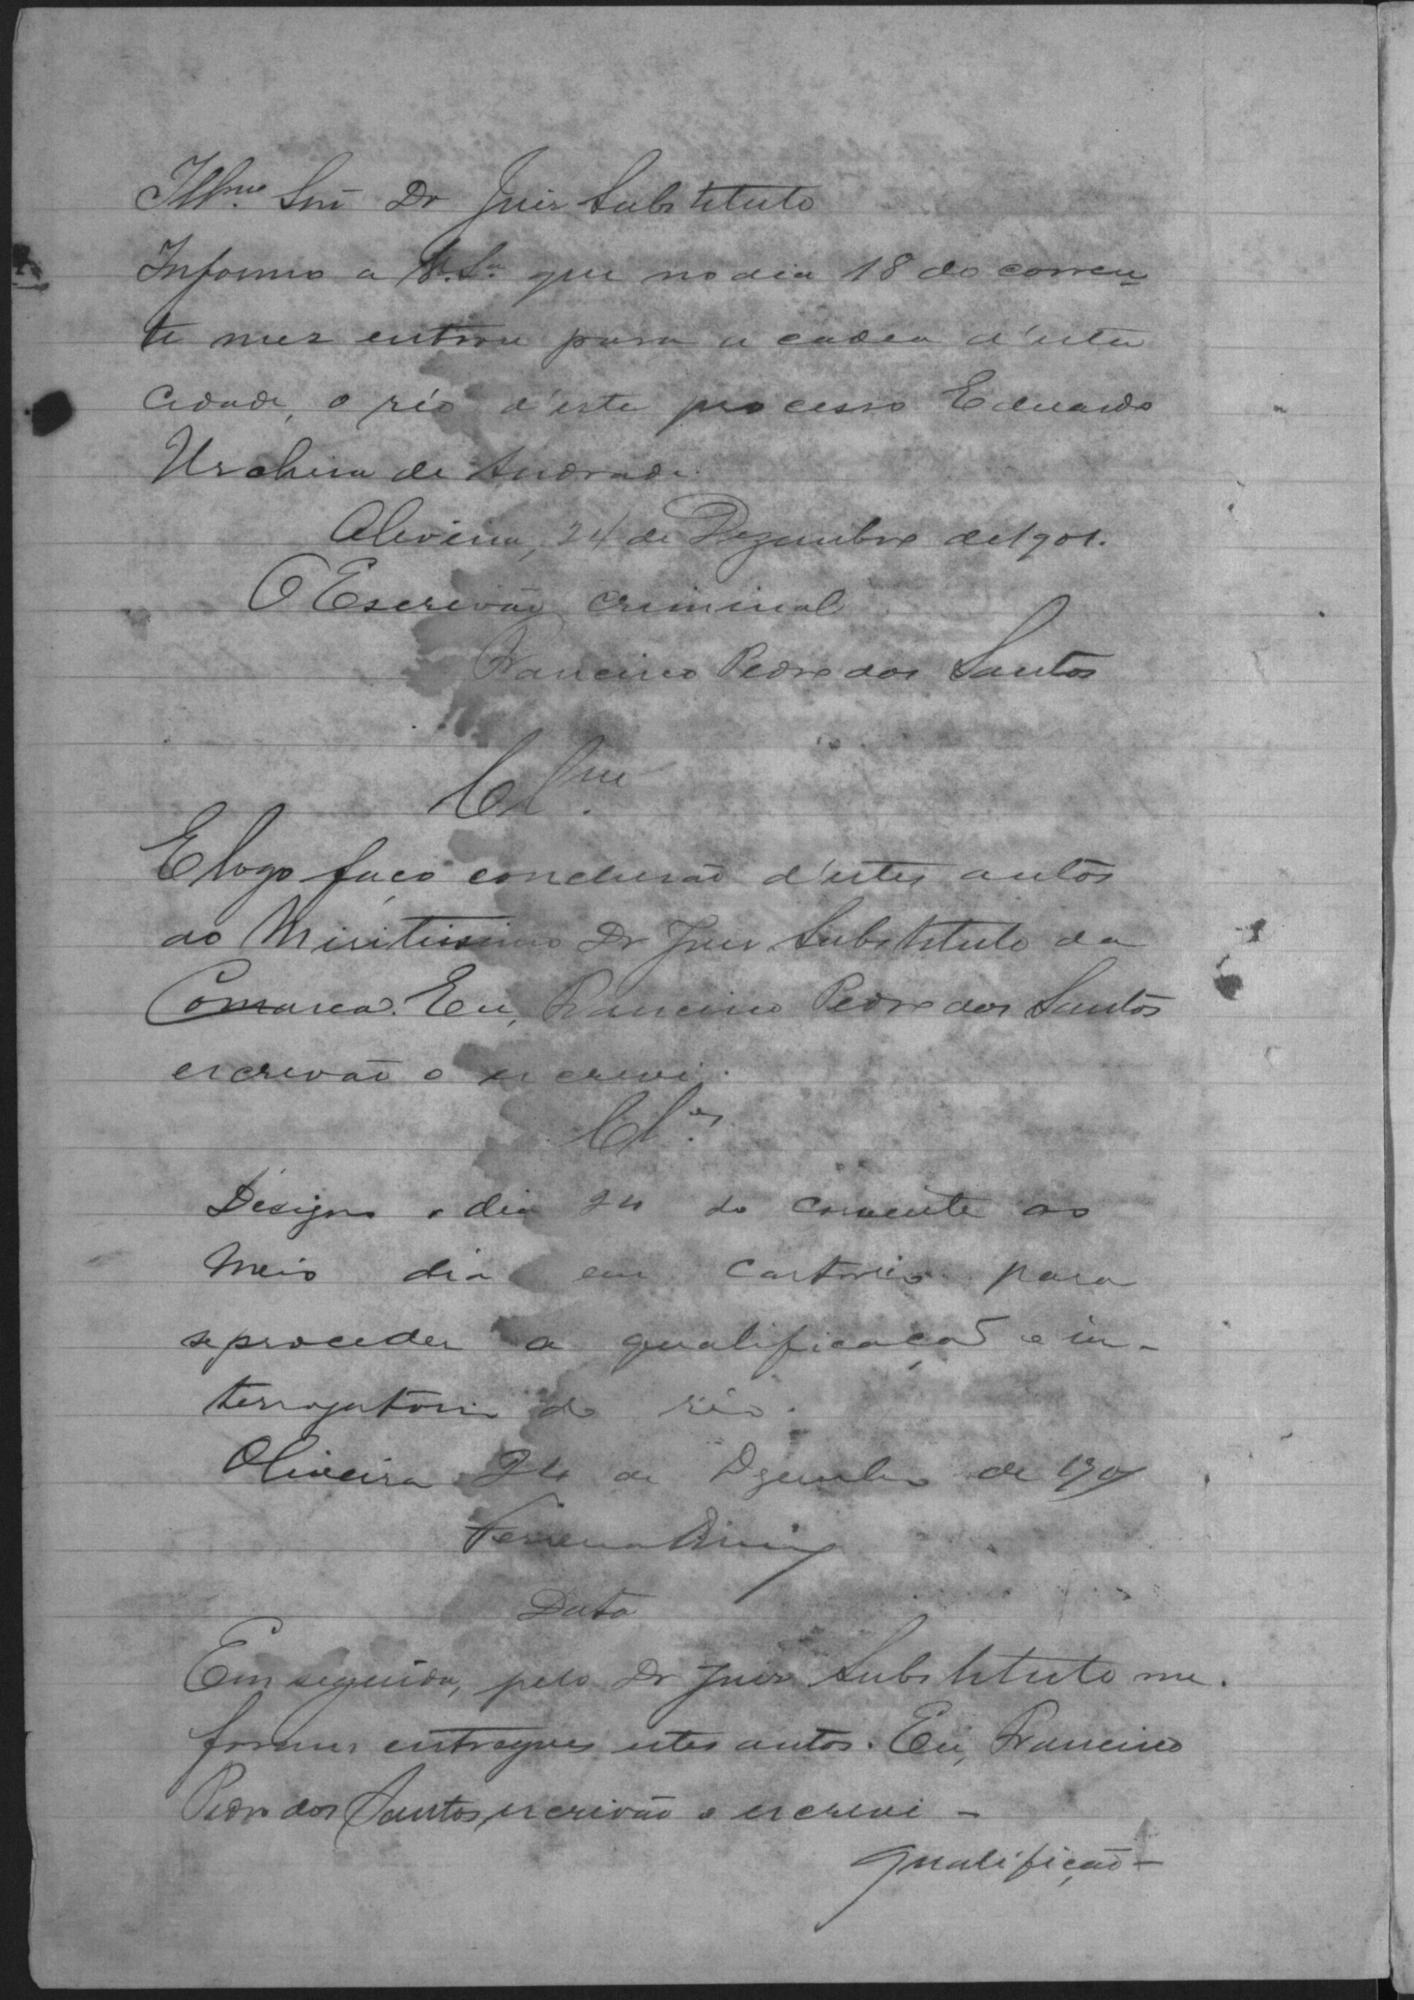 Illmo Snr Dr Juiz Substituto
Informo a V. Sa. que no dia 18 do corren-
te mez entrou para a cadea d'esta
cidade, o réo d'este processo Eduardo
de Andrade.
Oliveira, 24 de Dezembro de 1901.
O Escrivão criminal
Francisco Pedro dos Santos
E logo faço conclusão d'estes autos
ao Meritissimo Dr Juiz Substituto da
Comarca. Eu, Francisco Pedro dos Santos
escrivão o escrevi.
Designo o dia 24 do corrente ao
meio dia em cartorio para
se proceder a qualificação e in-
terrogatorio do réo.
Oliveira 24 de Dezembro de 1901
Ferreira
Data
Em seguida, pelo Dr Juiz Substituto me
foram entregues estes autos. Eu, Francisco
Pedro dos Santos, escrivão o escrevi -
Qualificação -